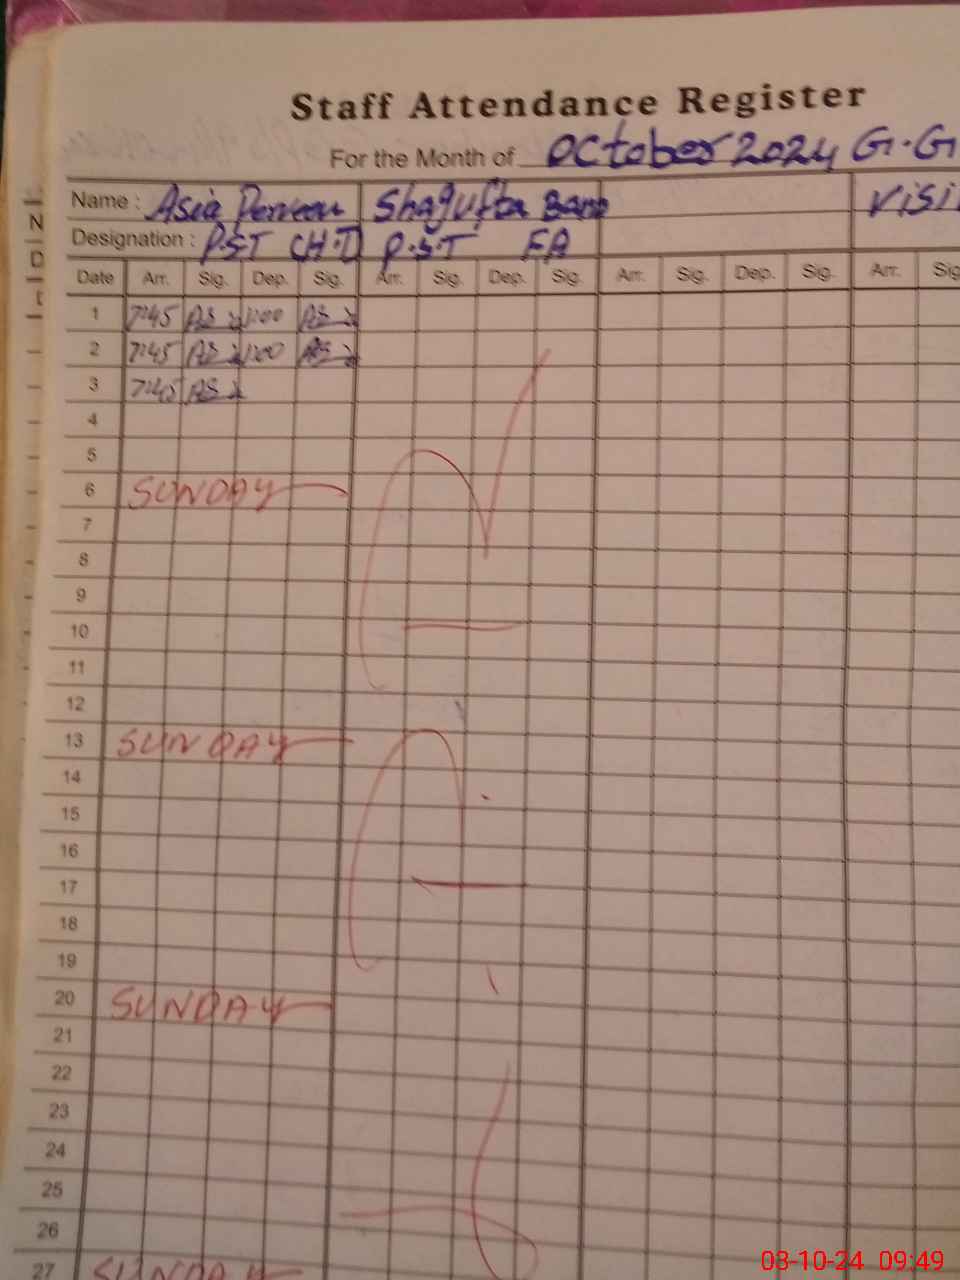 Staff Attendance Register
For the Month of October 2024 G.G
Name : Asia Perveen Shagufta Bano Visi
Designation : P.S.T CH.T P.S.T FA
N
D
Date Arr. Sig. Dep. Sig. Arr. Sig. Dep. Sig. Arr. Sig. Dep. Sig. Arr. Sig
1 7:45 AS 1:00 AS
2 7:45 AS 1:00 AS
3 7:45 AS
4
5
6 SUNDAY
7
8
9
10
11
12
13 SUNDAY
14
15
16
17
18
19
20 SUNDAY
21
22
23
24
25
26
27 SUNDAY
03-10-24 09:49